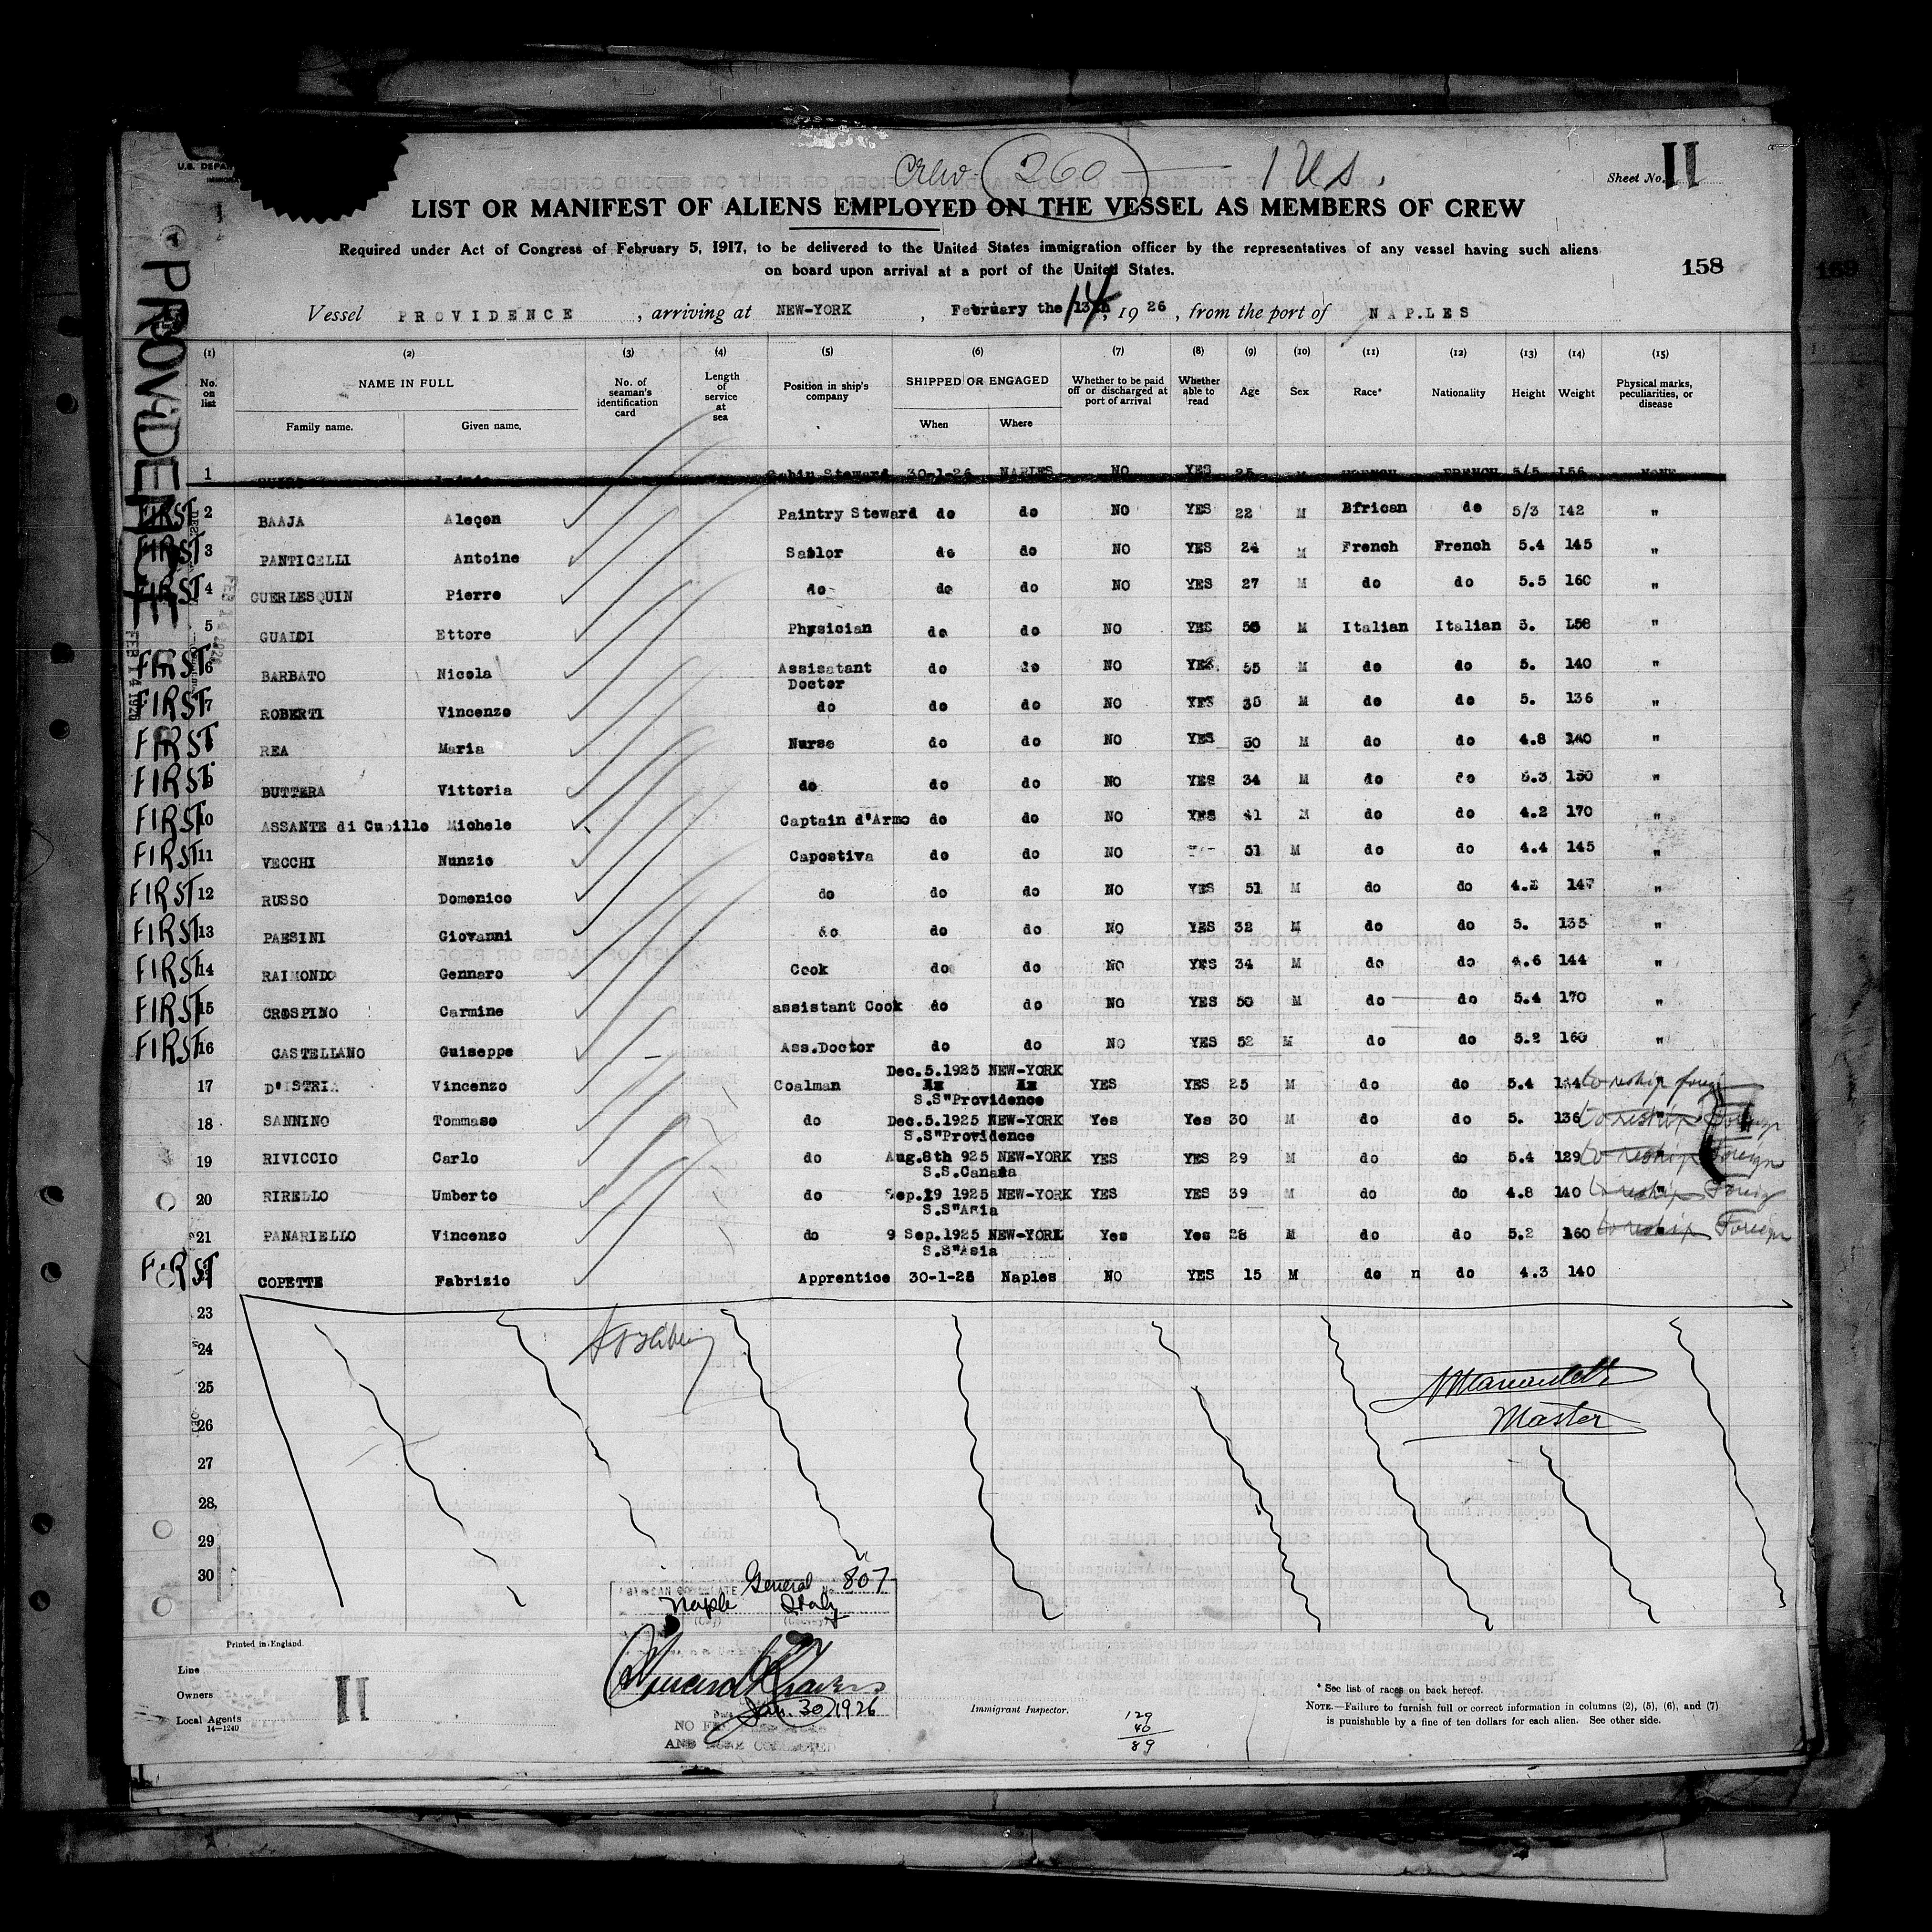 Crew 260 — 1 U.S.
Sheet No. II
LIST OR MANIFEST OF ALIENS EMPLOYED ON THE VESSEL AS MEMBERS OF CREW
Required under Act of Congress of February 5, 1917, to be delivered to the United States immigration officer by the representatives of any vessel having such aliens
on board upon arrival at a port of the United States.
158
Vessel PROVIDENCE, arriving at NEW-YORK, February the 13th 14, 1926, from the port of NAPLES
PROVIDENCE
(1) (2) (3) (4) (5) (6) (7) (8) (9) (10) (11) (12) (13) (14) (15)
No. on list NAME IN FULL Family name. Given name. No. of seaman's identification card Length of service at sea Position in ship's company SHIPPED OR ENGAGED When Where Whether to be paid off or discharged at port of arrival Whether able to read Age Sex Race* Nationality Height Weight Physical marks, peculiarities, or disease
1 Cabin Steward 30-1-26 NAPLES NO YES 25 M FRENCH FRENCH 5/5 156 NONE
FIRST 2 BAAJA Aleçon Paintry Steward do do NO YES 22 M Bfrican do 5/3 I42 "
FIRST 3 PANTICELLI Antoine Sailor do do NO YES 24 M French French 5.4 145 "
FIRST 4 GUERLESQUIN Pierre do do do NO YES 27 M do do 5.5 160 "
5 GUALDI Ettore Physician do do NO YES M Italian Italian 3. 158 "
FIRST 6 BARBATO Nicola Assisatant Doctor do do NO YES 55 M do do 5. 140 "
FIRST 7 ROBERTI Vincenzo do do do NO YES 35 M do do 5. 136 "
FIRST REA Maria Nurse do do NO YES 30 M do do 4.8 140 "
FIRST 9 BUTTERA Vittoria do do do NO YES 34 M do do 5.3 150 "
FIRST 10 ASSANTE di Cupille Michele Captain d'Armo do do NO YES 41 M do do 4.2 170 "
FIRST 11 VECCHI Nunzio Capostiva do do NO 51 M do do 4.4 145 "
FIRST 12 RUSSO Domenico do do do NO YES 51 M do do 4.2 147 "
FIRST 13 PAESINI Giovanni do do do NO YES 32 M do do 5. 135 "
FIRST 14 RAIMONDO Gennaro Cook do do NO YES 34 M do do 4.6 144 "
FIRST 15 CROSPINO Carmine assistant Cook do do NO YES 50 M do do 5.4 170 "
FIRST 16 CASTELLANO Guiseppe Ass.Doctor do do NO YES 52 M do do 5.2 160 "
17 D'ISTRIA Vincenzo Coalman Dec.5.1925 NEW-YORK S.S"Providence YES YES 25 M do do 5.4 to reship foreign
18 SANNINO Tommaso do Dec.5.1925 NEW-YORK S.S"Providence Yes Yes 30 M do do 5. 136 to reship Foreign
19 RIVICCIO Carlo do Aug.8th 925 NEW-YORK S.S.Canada YES YES 29 M do do 5.4 129 to reship Foreign
20 RIRELLO Umberto do Sep.19 1925 NEW-YORK S.S"Asia YES YES 39 M do do 4.8 140 to reship Foreign
21 PANARIELLO Vincenzo do 9 Sep.1925 NEW-YORK S.S"Asia Yes Yes 28 M do do 5.2 160 to reship Foreign
FIRST COPETTE Fabrizio Apprentice 30-1-26 Naples NO YES 15 M do n do 4.3 140
23
24
25
26
27
28
29
30
FEB 14 1926
Master
General No. 807
Naple Italy
Jan. 30, 1926
Printed in England.
Line
Owners
Local Agents
14—1240
II
Immigrant Inspector.
129
40
89
* See list of races on back hereof.
NOTE.—Failure to furnish full or correct information in columns (2), (5), (6), and (7)
is punishable by a fine of ten dollars for each alien. See other side.